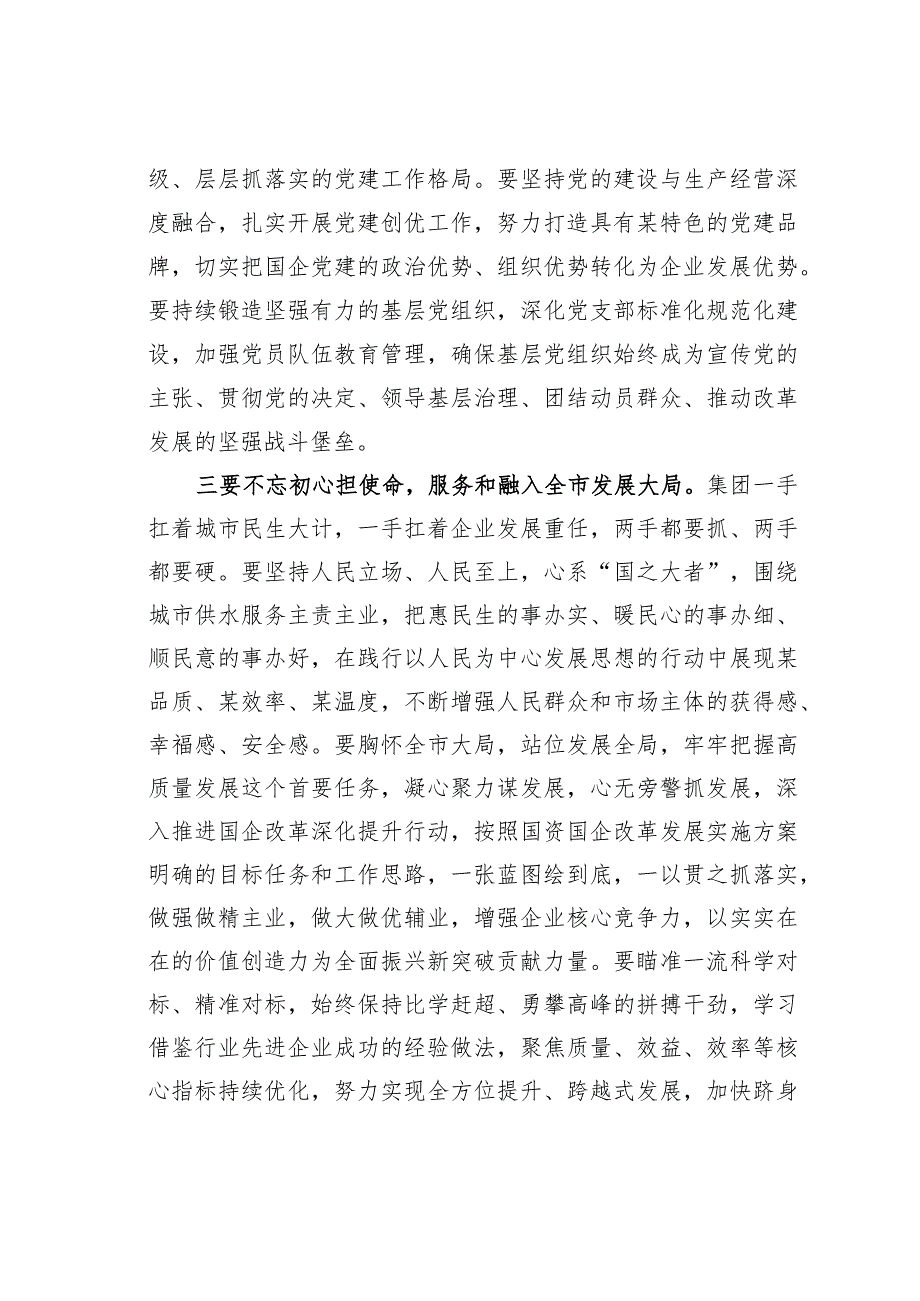 级、层层抓落实的党建工作格局。要坚持党的建设与生产经营深
度融合，扎实开展党建创优工作，努力打造具有某特色的党建品
牌，切实把国企党建的政治优势、组织优势转化为企业发展优势。
要持续锻造坚强有力的基层党组织，深化党支部标准化规范化建
设，加强党员队伍教育管理，确保基层党组织始终成为宣传党的
主张、贯彻党的决定、领导基层治理、团结动员群众、推动改革
发展的坚强战斗堡垒。
三要不忘初心担使命，服务和融入全市发展大局。集团一手
扛着城市民生大计，一手扛着企业发展重任，两手都要抓、两手
都要硬。要坚持人民立场、人民至上，心系“国之大者”，围绕
城市供水服务主责主业，把惠民生的事办实、暖民心的事办细、
顺民意的事办好，在践行以人民为中心发展思想的行动中展现某
品质、某效率、某温度，不断增强人民群众和市场主体的获得感、
幸福感、安全感。要胸怀全市大局，站位发展全局，牢牢把握高
质量发展这个首要任务，凝心聚力谋发展，心无旁警抓发展，深
入推进国企改革深化提升行动，按照国资国企改革发展实施方案
明确的目标任务和工作思路，一张蓝图绘到底，一以贯之抓落实，
做强做精主业，做大做优辅业，增强企业核心竞争力，以实实在
在的价值创造力为全面振兴新突破贡献力量。要瞄准一流科学对
标、精准对标，始终保持比学赶超、勇攀高峰的拼搏干劲，学习
借鉴行业先进企业成功的经验做法，聚焦质量、效益、效率等核
心指标持续优化，努力实现全方位提升、跨越式发展，加快跻身